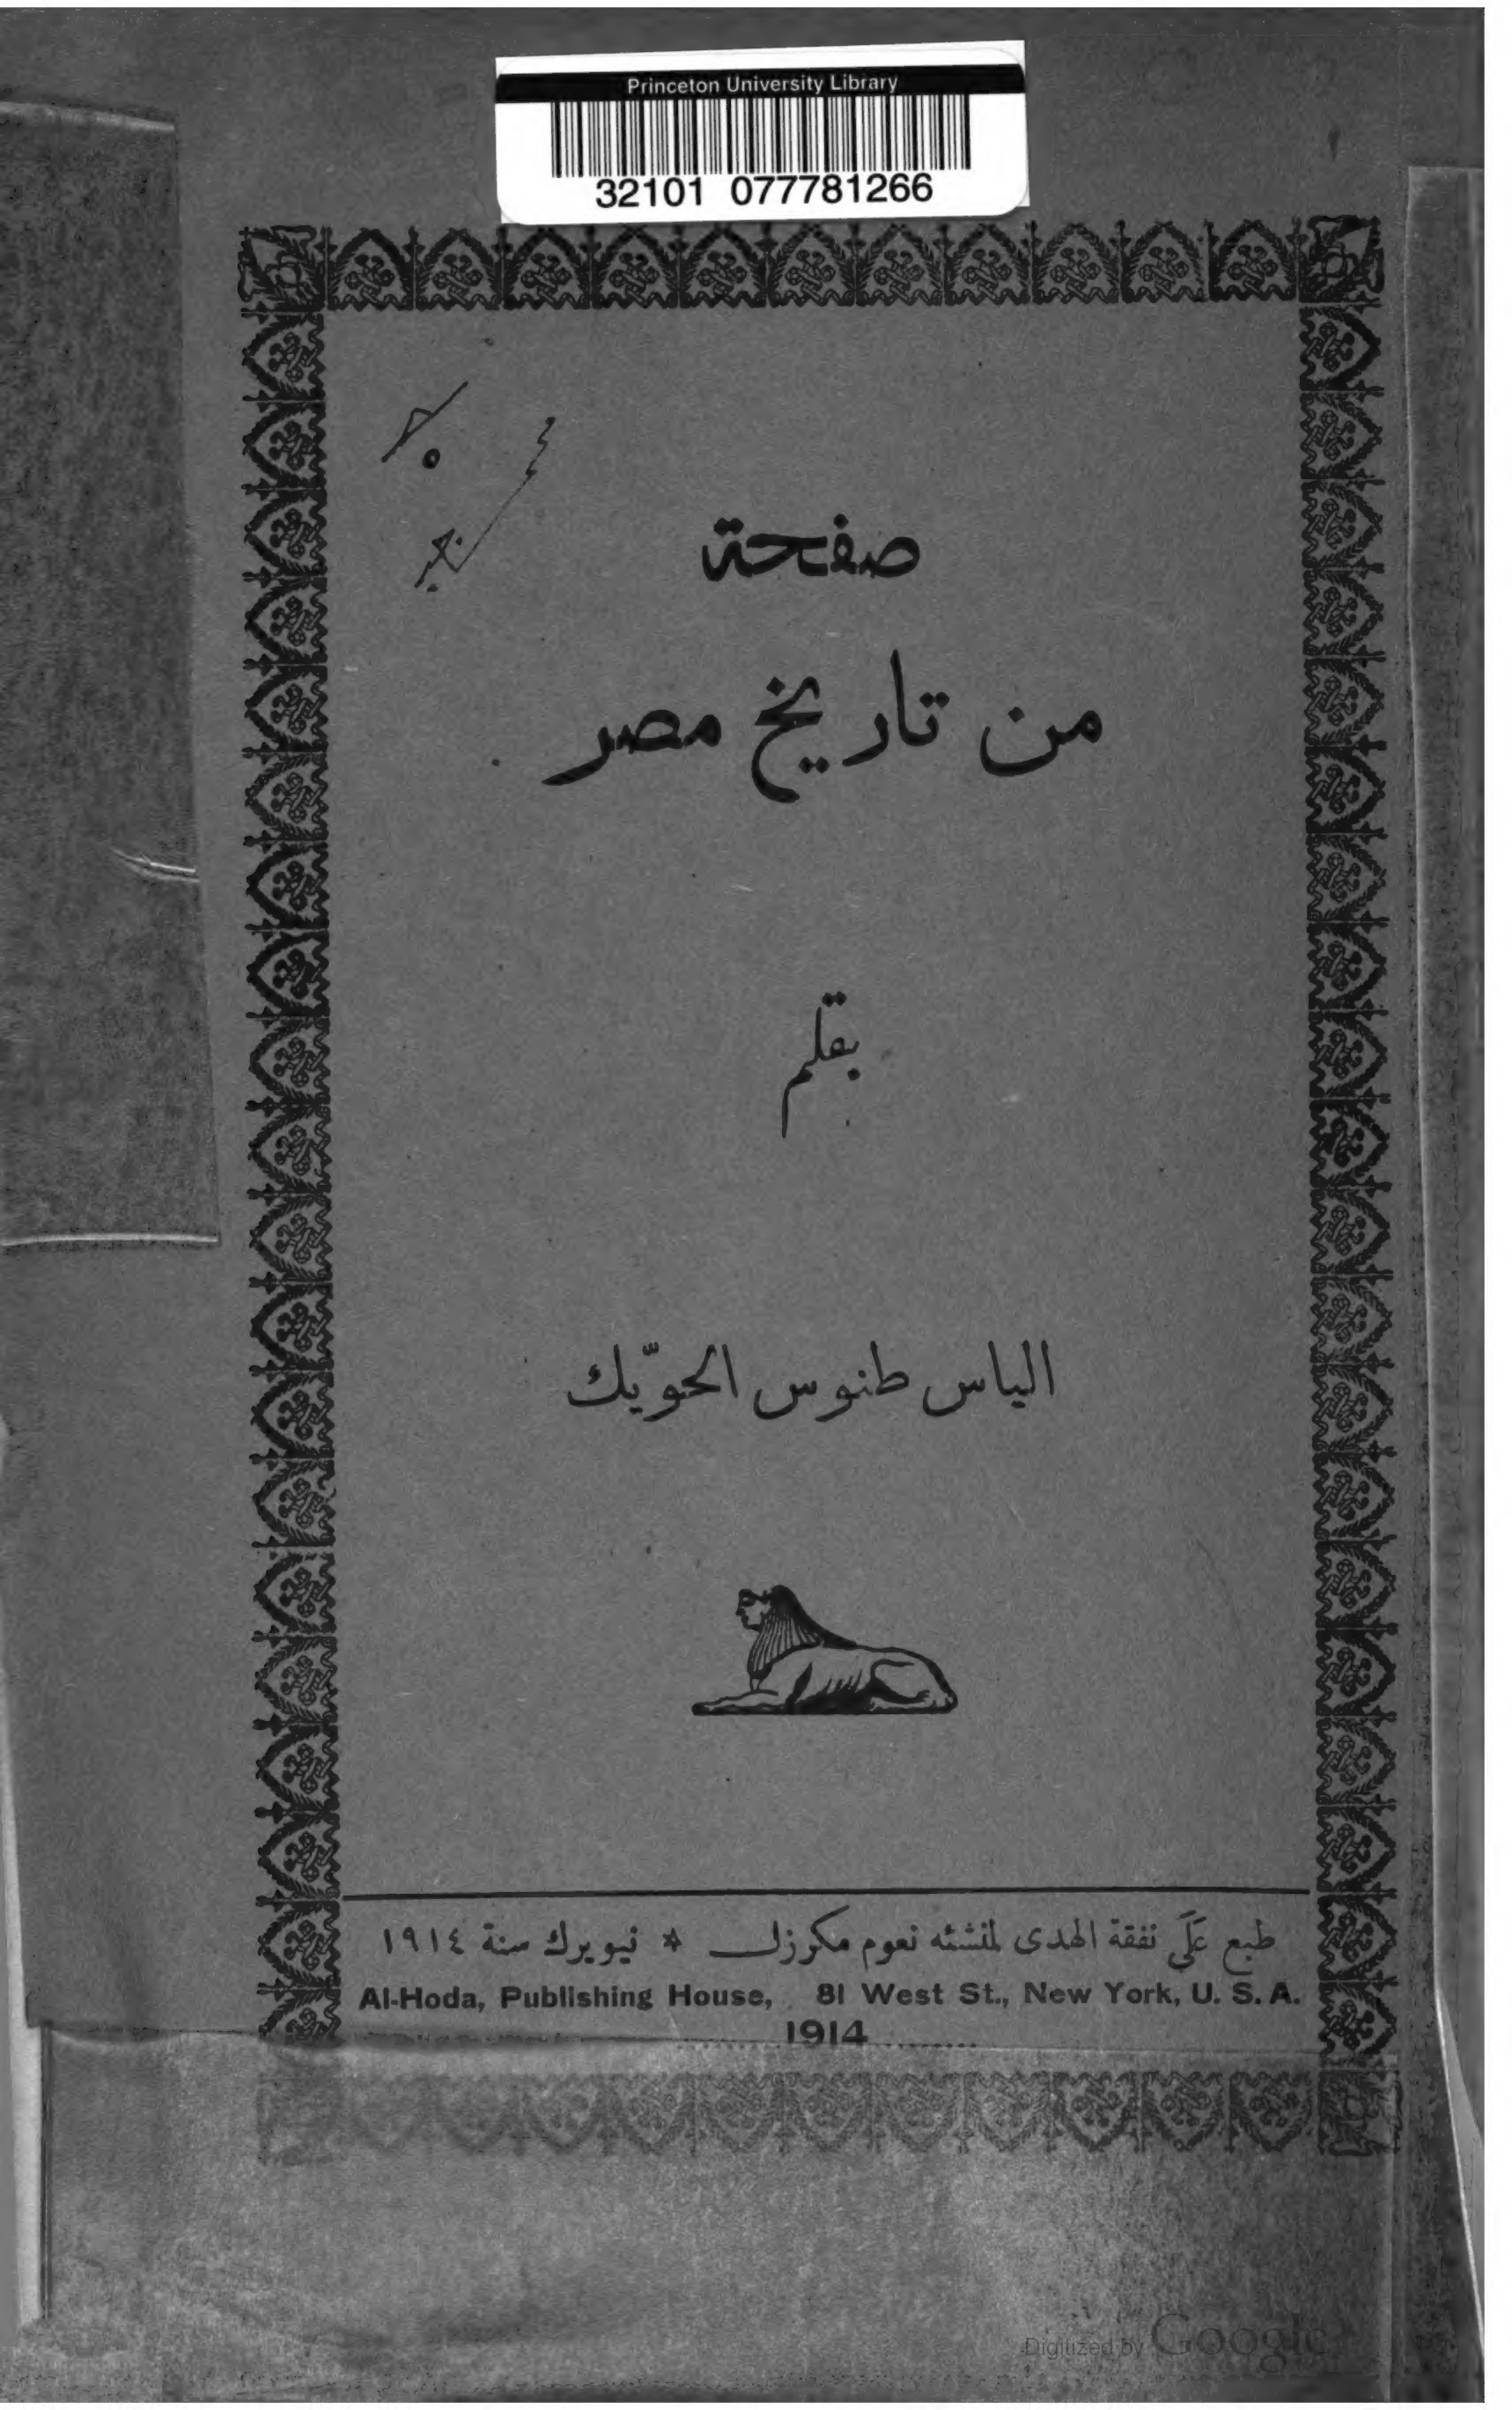 Princeton University Library
32101 077781266
صفحة
من تاريخ مصر
بقلم
الياس طنوس الحويّك
طبع على نفقة الهدى لمنشئه نعوم مكرزل * نيويرك سنة ١٩١٤
Al-Hoda, Publishing House, 81 West St., New York, U. S. A.
1914
Digitized by Google